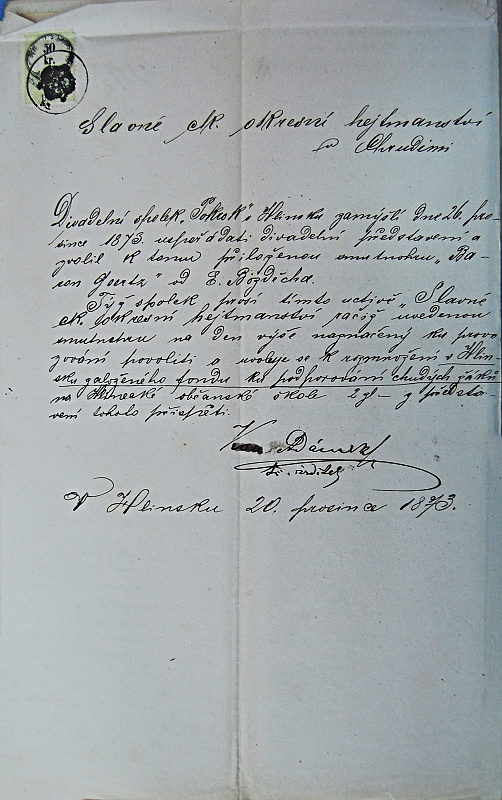 50
kr.
Slavné ck. okresní hejtmanství
v Chrudimi
Divadelní spolek „Pokrok" v Hlinsku zamýšlí dne 26. pro-
since 1873. uspořádati divadelní představení a
zvolil k tomu přiloženou smutnohru „Ba-
ron Goertz" od E. Bozděcha.
Týž spolek prosí tímto uctivě, „Slavné
ck. okresní hejtmanství račiž uvedenou
smutnohru na den výše naznačený ku provo-
zování povoliti a uvoluje se k rozmnožení v Hlin-
sku založeného fondu ku podporování chudých žáků
na Hlinecké občanské škole 2 zl – z předsta-
vení tohoto přispěti.
Adámek
t. č. ředitel
V Hlinsku 20. prosince 1873.